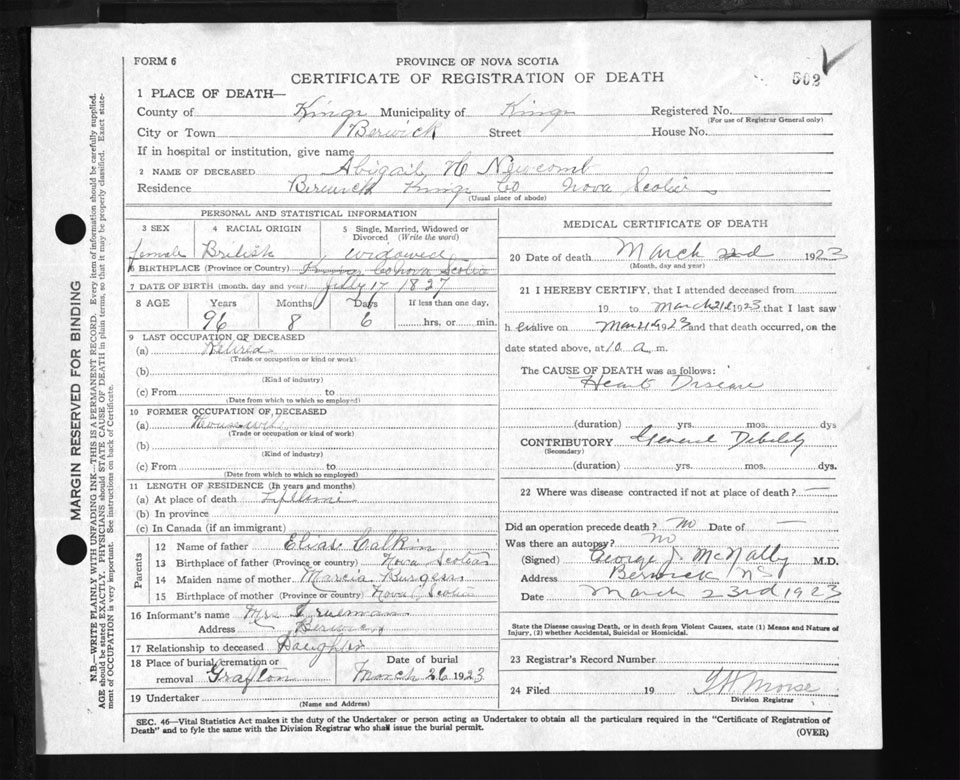 FORM 6
PROVINCE OF NOVA SCOTIA
CERTIFICATE OF REGISTRATION OF DEATH
502
1 PLACE OF DEATH—
County of Kings Municipality of Kings Registered No.
(For use of Registrar General only)
City or Town Berwick Street House No.
If in hospital or institution, give name
2 NAME OF DECEASED Abigail H Newcomb
Residence Berwick Kings Co Nova Scotia
(Usual place of abode)
PERSONAL AND STATISTICAL INFORMATION
3 SEX 4 RACIAL ORIGIN 5 Single, Married, Widowed or Divorced (Write the word)
female British widowed
6 BIRTHPLACE (Province or Country) Kings Co Nova Scotia
7 DATE OF BIRTH (month, day and year) July 17 1827
8 AGE Years Months Days If less than one day,
96 8 6 hrs. or min.
9 LAST OCCUPATION OF DECEASED
(a) Retired
(Trade or occupation or kind of work)
(b)
(Kind of industry)
(c) From to
(Date from which to which so employed)
10 FORMER OCCUPATION OF DECEASED
(a) Housewife
(Trade or occupation or kind of work)
(b)
(Kind of industry)
(c) From to
(Date from which to which so employed)
11 LENGTH OF RESIDENCE (In years and months)
(a) At place of death Lifetime
(b) In province
(c) In Canada (if an immigrant)
Parents
12 Name of father Elias Calkin
13 Birthplace of father (Province or country) Nova Scotia
14 Maiden name of mother Marcia Burgess
15 Birthplace of mother (Province or country) Nova Scotia
16 Informant's name Mrs
Address Berwick
17 Relationship to deceased Daughter
18 Place of burial, cremation or removal Grafton Date of burial March 26 1923
19 Undertaker
(Name and Address)
MEDICAL CERTIFICATE OF DEATH
20 Date of death March 1923
(Month, day and year)
21 I HEREBY CERTIFY, that I attended deceased from
19 to March 21st 1923 that I last saw
h er alive on Mar 21st 1923 and that death occurred, on the
date stated above, at 10 a m.
The CAUSE OF DEATH was as follows:
Heart Disease
(duration) yrs. mos. dys
CONTRIBUTORY General Debility
(Secondary)
(duration) yrs. mos. dys.
22 Where was disease contracted if not at place of death? —
Did an operation precede death? No Date of —
Was there an autopsy? No
(Signed) George J. McNally M.D.
Address Berwick NS
Date March 23rd 1923
State the Disease causing Death, or in death from Violent Causes, state (1) Means and Nature of
Injury, (2) whether Accidental, Suicidal or Homicidal.
23 Registrar's Record Number
24 Filed 19 Morse
Division Registrar
SEC. 46—Vital Statistics Act makes it the duty of the Undertaker or person acting as Undertaker to obtain all the particulars required in the "Certificate of Registration of
Death" and to fyle the same with the Division Registrar who shall issue the burial permit.
(OVER)
MARGIN RESERVED FOR BINDING
N.B.—WRITE PLAINLY WITH UNFADING INK—THIS IS A PERMANENT RECORD. Every item of information should be carefully supplied.
AGE should be stated EXACTLY. PHYSICIANS should STATE CAUSE OF DEATH in plain terms, so that it may be properly classified. Exact state-
ment of OCCUPATION is very important. See instructions on back of Certificate.